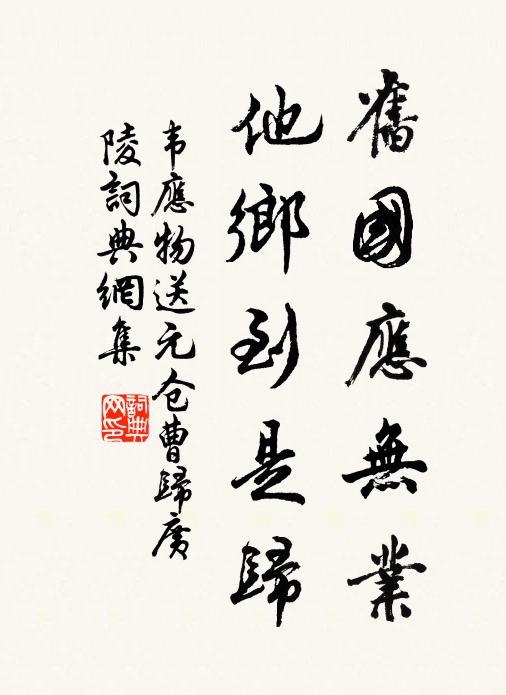 舊國應無業
他鄉到是歸
韦應物送元仓曹歸廣
陵詞典網集
詞典网印